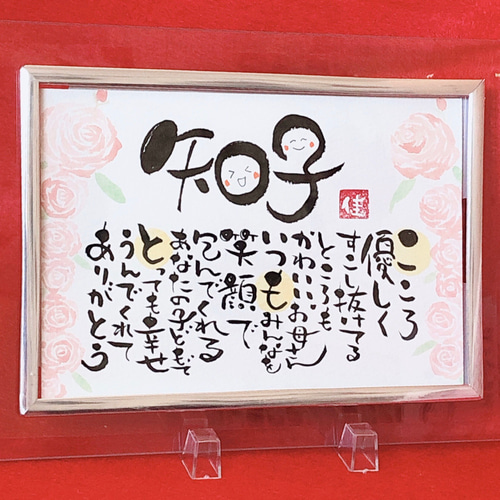 知子
佳
こころ
優しく
すこし抜けてる
ところも
かわいいお母さん
いつもみんなを
笑顔で
包んでくれる
あなたの子どもで
とっても幸せ
うんでくれて
ありがとう